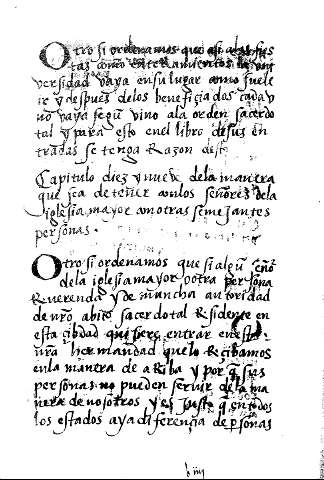 Otro si ordenamos que asi a las fies
tas como enterramientos la uni
versidad vaya en su lugar como suele
ir y despues de los beneficiados cada v
no vaya segũ vino a la orden sacerdo
tal y para esto en el libro de sus en
tradas se tenga Razon dest
Capitulo diez y nueve de la manera
que sea de tener con los señores de la
iglesia mayor con otras semejantes
personas.
Otro si ordenamos que si algũ señor
de la iglesia mayor o otra persona
Reverenda y de mancha autoridad
de nr̃o abito sacerdotal Residente en
esta cibdad quisiere entrar en esta
nr̃a hermandad que lo Recibamos
en la manera de aRiba y por q̃ sus
personas no pueden servir de la ma
nera de nosotros y es justo q̃ en todos
los estados aya diferençia de personas